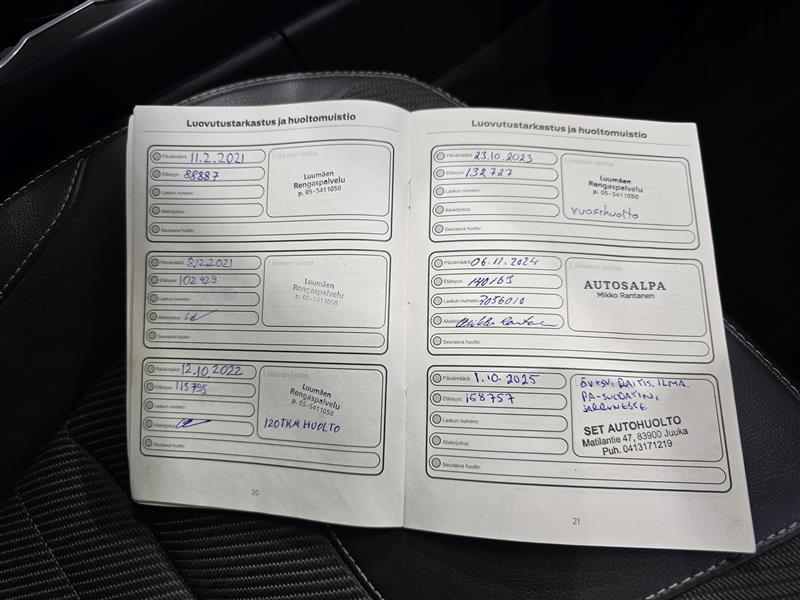 Luovutustarkastus ja huoltomuistio
Päivämäärä: 11.2.2021
Etäisyys: 88887
Laskun numero:
Allekirjoitus:
Seuraava huolto:
Liikkeen leima
Luumäen
Rengaspalvelu
p. 05-5411050
Päivämäärä: 3.12.2021
Etäisyys: 102929
Laskun numero:
Allekirjoitus:
Seuraava huolto:
Liikkeen leima
Luumäen
Rengaspalvelu
p. 05-5411050
Päivämäärä: 12.10.2022
Etäisyys: 115795
Laskun numero:
Allekirjoitus:
Seuraava huolto:
Liikkeen leima
Luumäen
Rengaspalvelu
p. 05-5411050
120TKM HUOLTO
20
Luovutustarkastus ja huoltomuistio
Päivämäärä: 23.10.2023
Etäisyys: 132727
Laskun numero:
Allekirjoitus:
Seuraava huolto:
Liikkeen leima
Luumäen
Rengaspalvelu
p. 05-5411050
vuosihuolto
Päivämäärä: 06.11.2024
Etäisyys: 140163
Laskun numero: 7056010
Allekirjoitus: Mikko Rantanen
Seuraava huolto:
Liikkeen leima
AUTOSALPA
Mikko Rantanen
Päivämäärä: 1.10.2025
Etäisyys: 158757
Laskun numero:
Allekirjoitus:
Seuraava huolto:
RAITIS. ILMA.
PA-SUODATIN,
JARRUNESTE
SET AUTOHUOLTO
Matilantie 47, 83900 Juuka
Puh. 0413171219
21